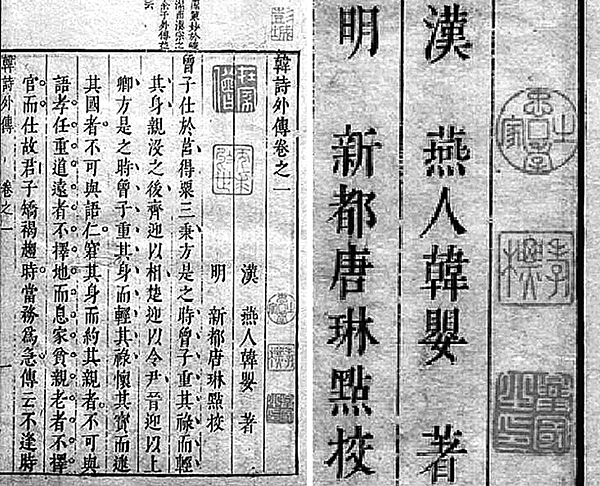 韓詩外傳卷之一
漢 燕人韓嬰 著
明 新都唐琳點校
曾子仕於莒得粟三秉方是之時曾子重其祿而輕
其身親没之後齊迎以相楚迎以令尹晉迎以上
卿方是之時曾子重其身而輕其祿懷其寶而迷
其國者不可與語仁窘其身而約其親者不可與
語孝任重道遠者不擇地而息家貧親老者不擇
官而仕故君子矯褐趨時當務爲急傳云不逢時
韓詩外傳 卷之一
漢 燕人韓嬰 著
明 新都唐琳點校